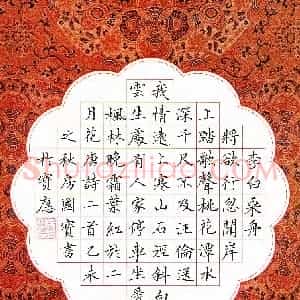 李白乘舟
將欲行忽聞岸
上踏歌聲桃花潭水
深千尺不及汪倫送
我情遠上寒山石徑斜白
雲生處有人家停車坐愛
楓林晚霜葉紅於二
月花唐詩二首己未
之秋房國寶書
寶應